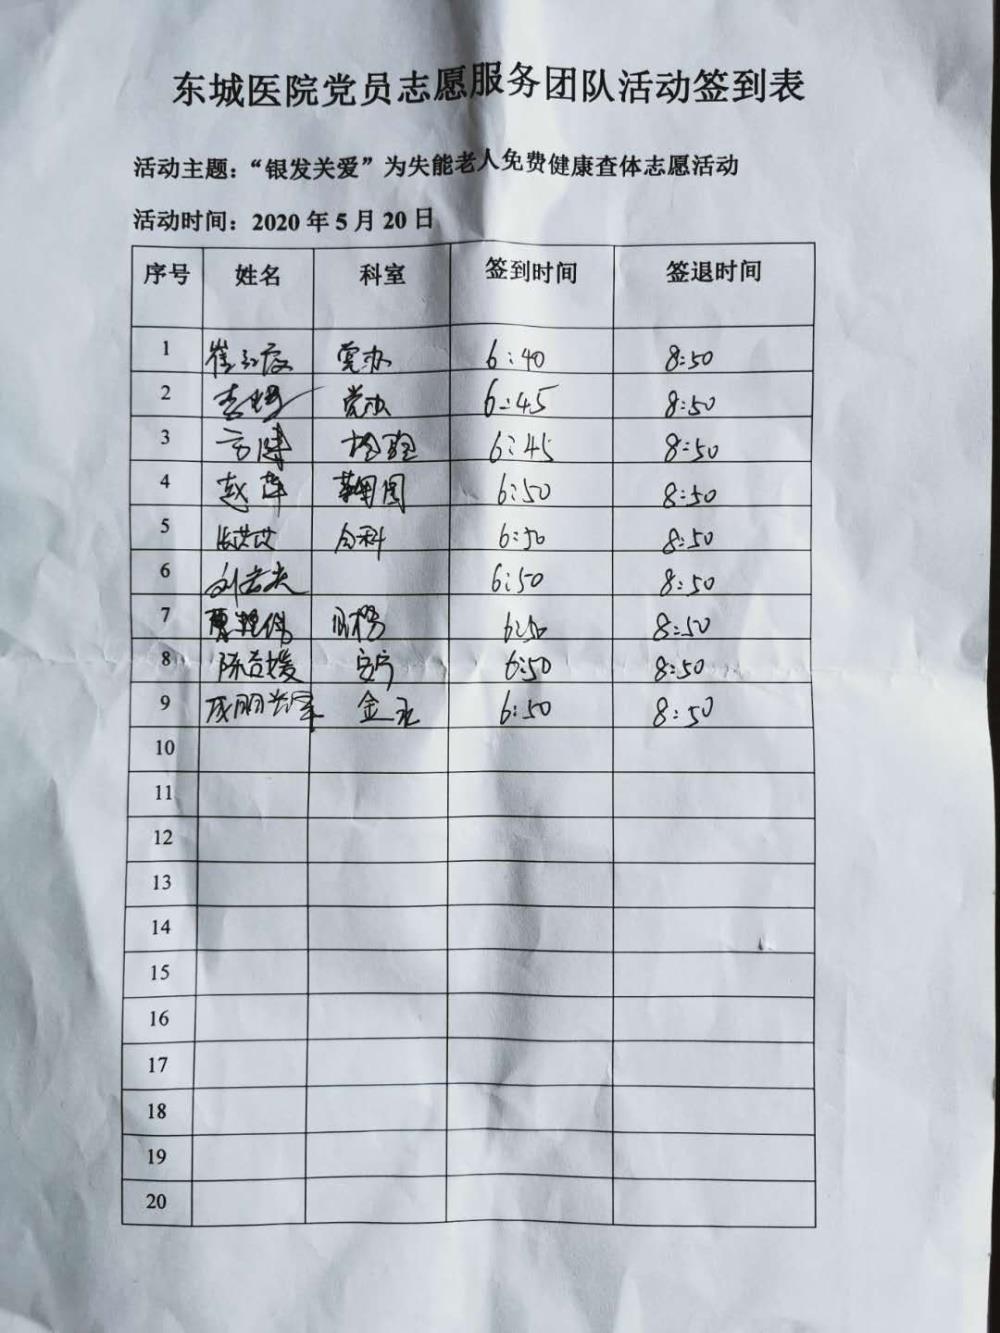 东城医院党员志愿服务团队活动签到表
活动主题：“银发关爱”为失能老人免费健康查体志愿活动
活动时间：2020 年 5 月 20 日
序号 姓名 科室 签到时间 签退时间
1 党办 6:40 8:50
2 党办 6:45 8:50
3 检验 6:45 8:50
4 赵萍 6:50 8:50
5 内科 6:50 8:50
6 6:50 8:50
7 6:50 8:50
8 6:50 8:50
9 6:50 8:50
10
11
12
13
14
15
16
17
18
19
20